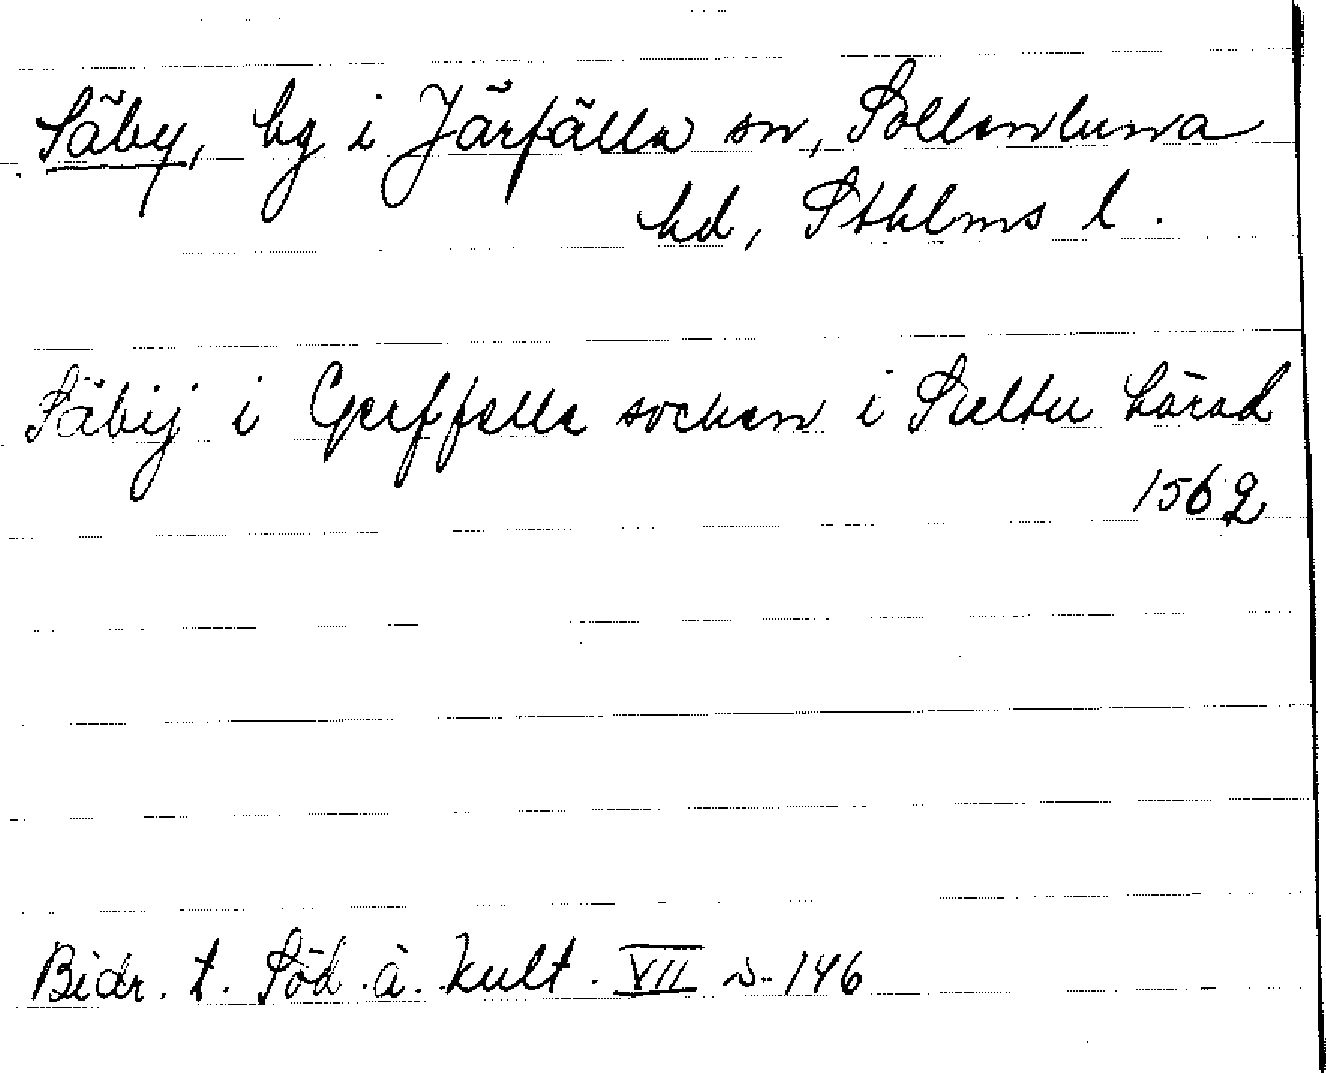 Säby, bg i Järfälla sn, Sollentuna
hd, Sthlms l.
Säbij i Gerffella socken i härad
1562
Bidr. t. Söd. ä. kult. VII s. 146